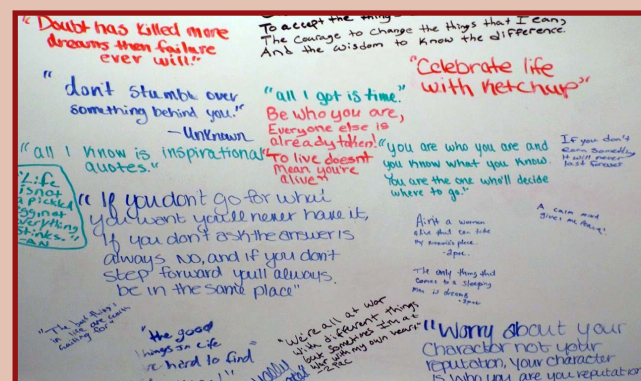 "Doubt has killed more
dreams then failure
ever will."
To accept the things
The courage to change the things that I can,
And the wisdom to know the difference.
"Celebrate life
with ketchup"
"don't stumble over
something behind you."
-Unknown
"all I got is time."
Be who you are,
Everyone else is
already taken!
"To live doesnt
mean you're
alive"
"all I know is inspirational
quotes."
"you are who you are and
you know what you know.
You are the one who'll decide
where to go."
If you don't
earn
it will never
last forever
"Life
is not
a pickled
egg, not
everything
stinks."
"If you don't go for what
you want you'll never have it,
If you don't ask the answer is
always NO, and if you don't
step forward you'll always
be in the same place"
Ain't a woman
alive that can take
my momma's place.
-2pac
A calm mind
gives
The only thing that
comes to a sleeping
man is dreams
-2pac
"The best things
in life are worth
waiting for"
"the good
things in life
re hard to find
"We're all at war
with different things
but sometimes I'm at
war with my own heart"
-2pac
"Worry about your
Character not your
reputation, your character
is who you are, your reputation